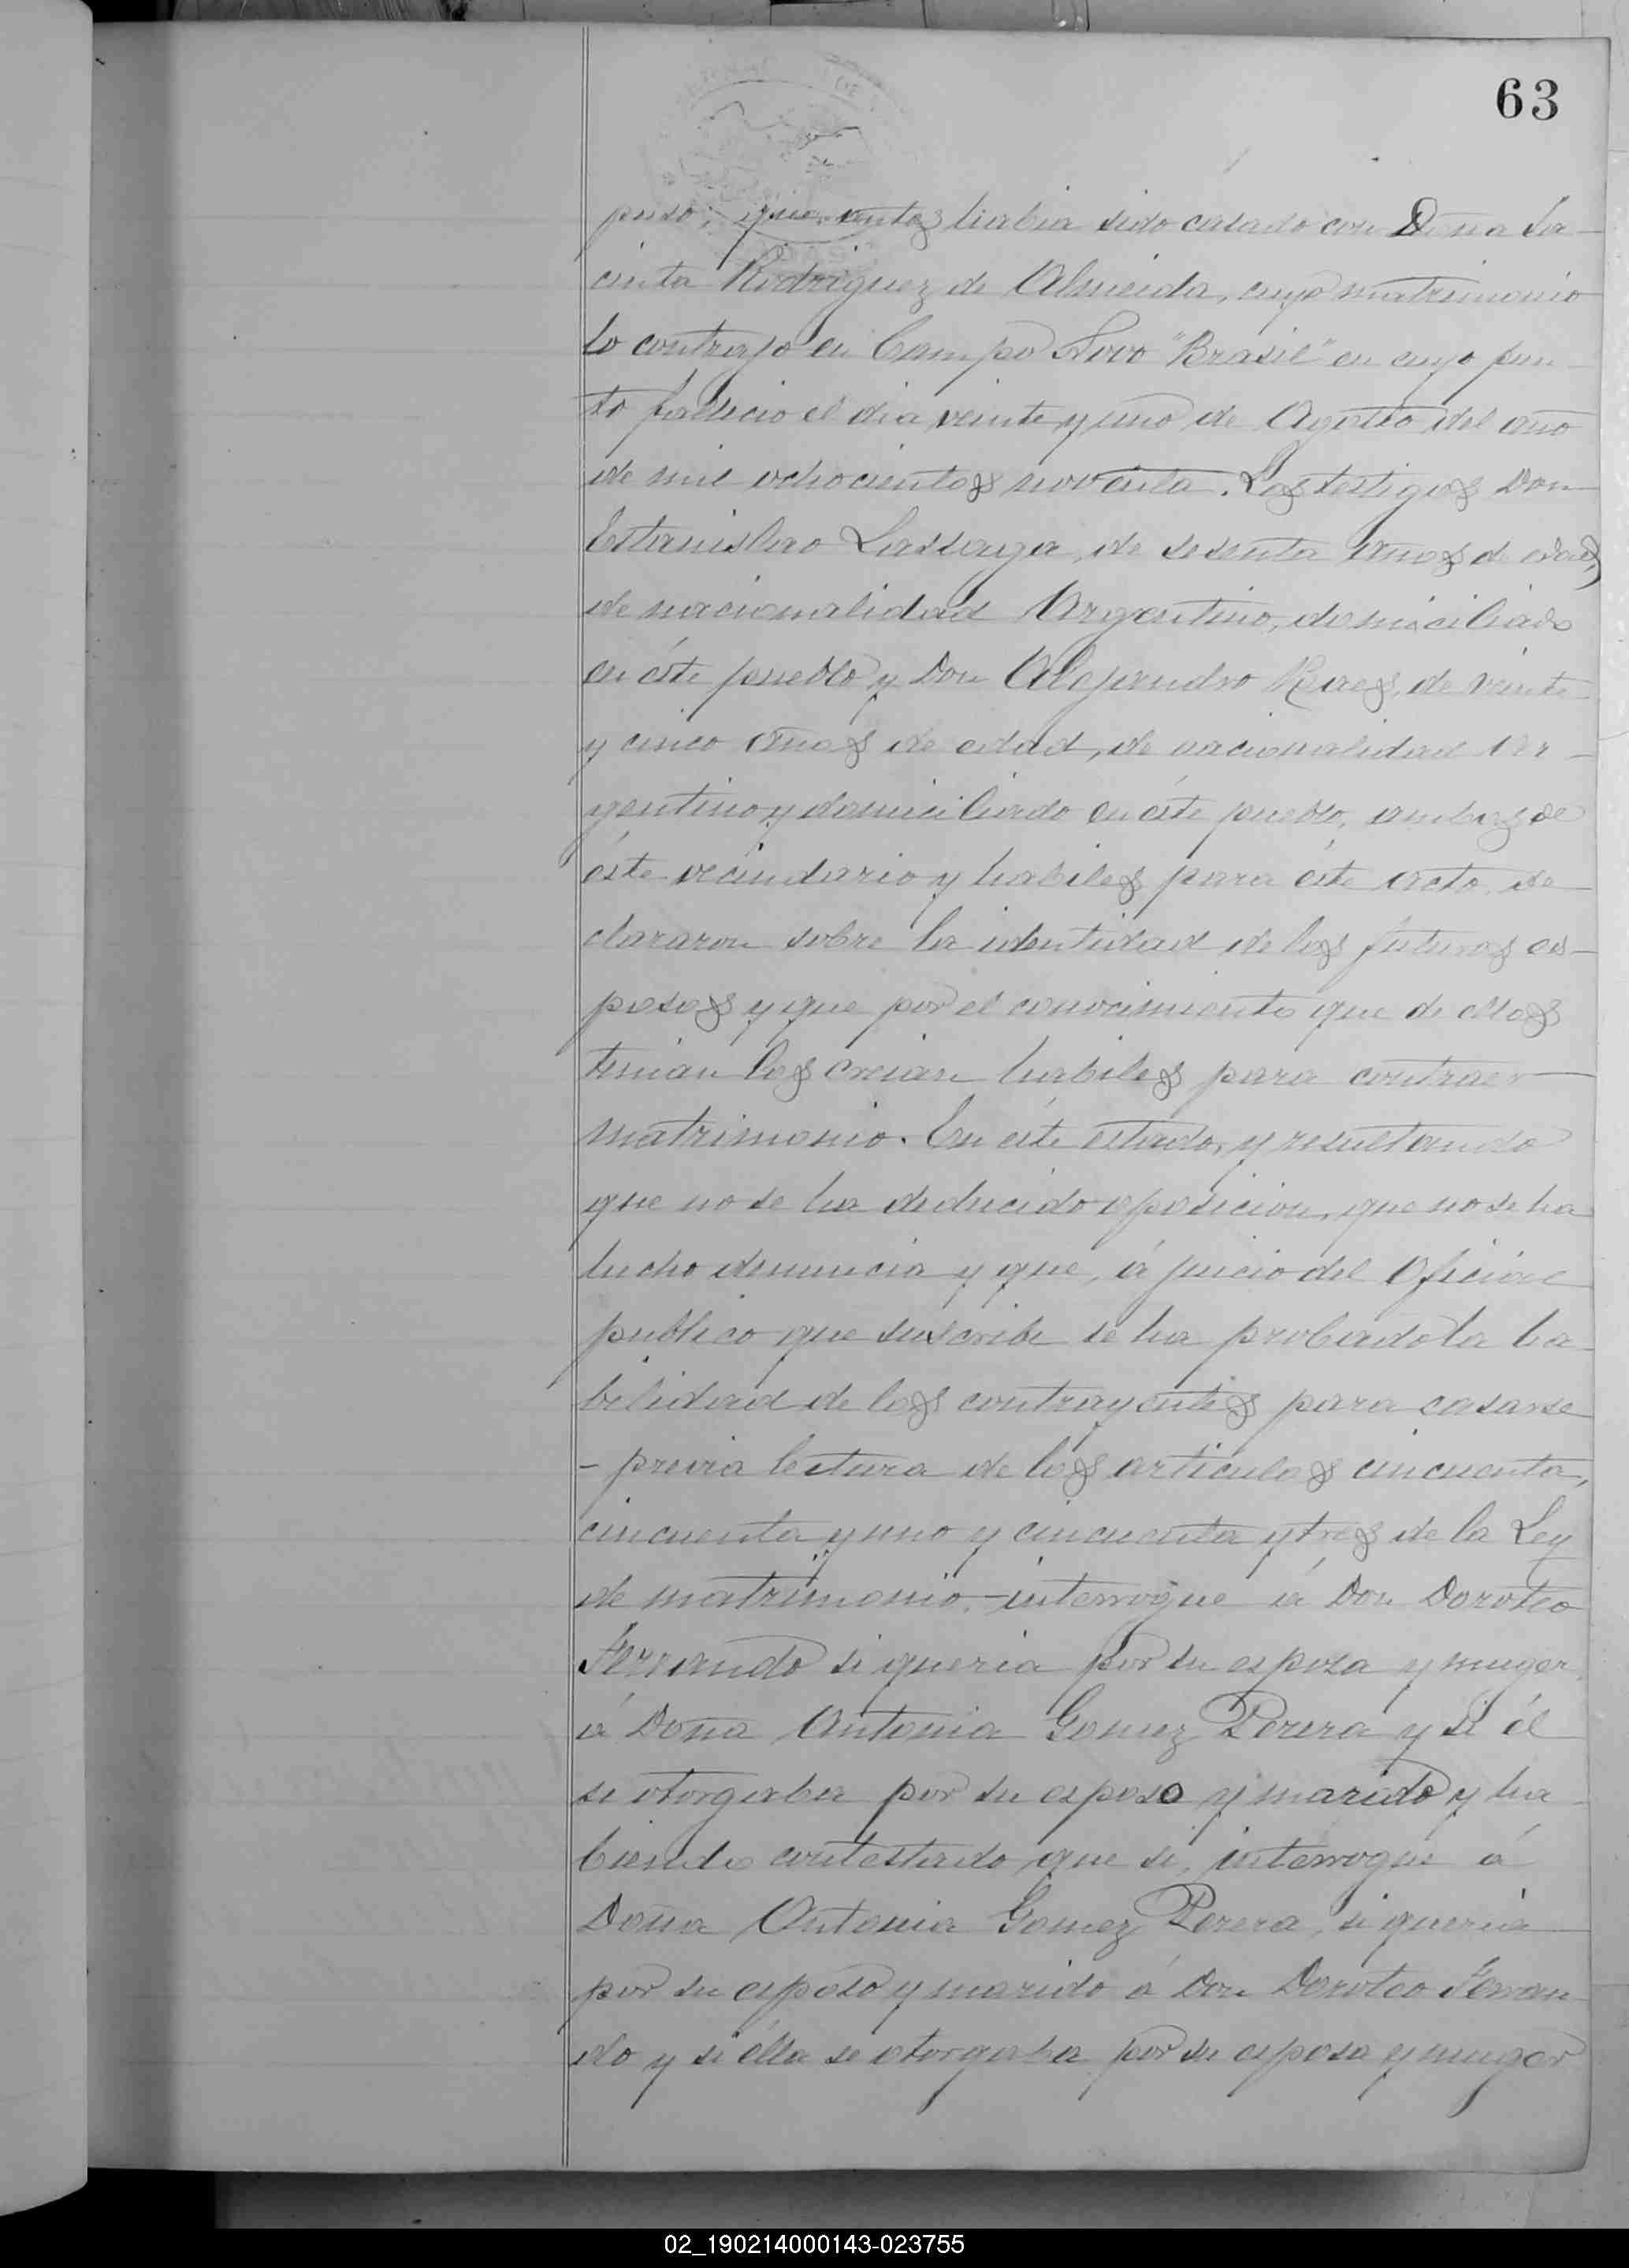 63
puso; que antes habia sido casado con Doña Ja-
cinta Rodriguez de Almeida, cuyo matrimonio
lo contrajo en Campo Novo "Brasil" en cuyo pun-
to fallecio el dia veinte y uno de Agosto del año
de mil ochocientos noventa. Los testigos Don
Estanislao Lassaga, de sesenta años de edad,
de nacionalidad Argentino, domiciliado
en éste pueblo y Don Alejandro de veinte
y cinco años de edad, de nacionalidad Ar-
gentino y domiciliado en éste pueblo, ambos de
éste vecindario y habiles para éste acto, de-
clararon sobre la identidad de los futuros es-
posos y que por el conocimiento que de ellos
tenian los creian habiles para contraer
matrimonio. En éste estado, y resultando
que no se ha deducido oposicion, que no se ha
hecho denuncia y que, á juicio del Oficial
publico que suscribe se ha probado la ha-
bilidad de los contrayentes para casarse
- previa lectura de los articulos cincuenta,
cincuenta y uno y cincuenta y tres de la Ley
de matrimonio,- interrogue á Don Doroteo
Ferrando si queria por su espoza y muger
á Doña Antonia Gomez Perera y si él
se otorgaba por su esposo y marido y ha-
biendo contestado que si, interrogue á
Doña Antonia Gomez Perera, si queria
por su esposo y marido á Don Doroteo Ferran-
do y si élla se otorgaba por su esposa y muger
02_190214000143-023755